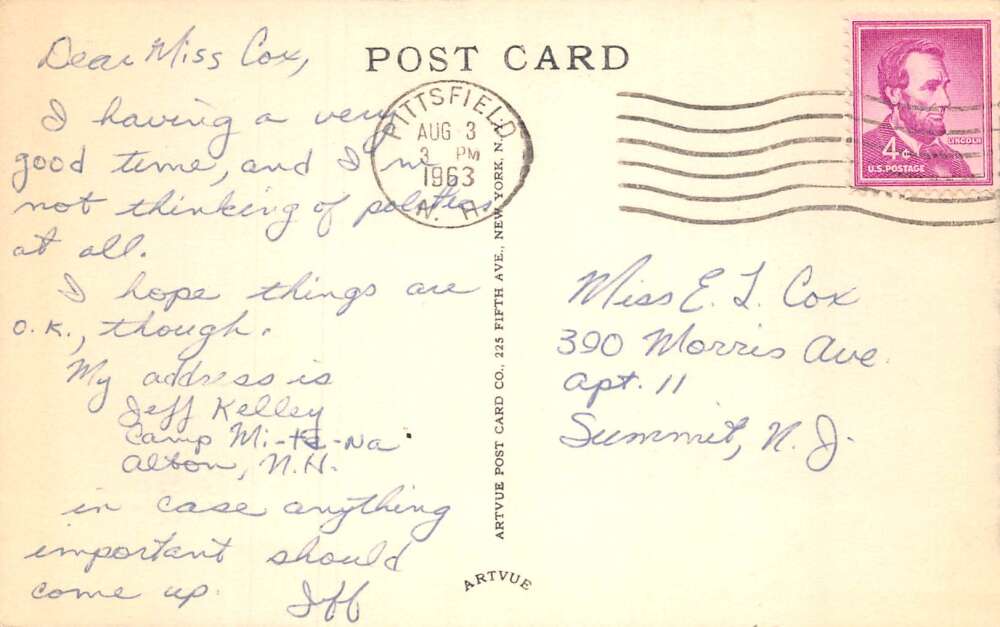 Dear Miss Cox,
I having a very
good time, and I'm
not thinking of politics
at all.
I hope things are
O.K., though.
My address is
Jeff Kelley
Camp Mi-Te-Na
Alton, N.H.
in case anything
important should
come up.
Jeff
POST CARD
PITTSFIELD
AUG 3
3 PM
1963
N. H.
ARTVUE POST CARD CO., 225 FIFTH AVE., NEW YORK, N.Y.
ARTVUE
LINCOLN
4¢
U.S. POSTAGE
Miss E. L. Cox
390 Morris Ave.
Apt. 11
Summit, N.J.